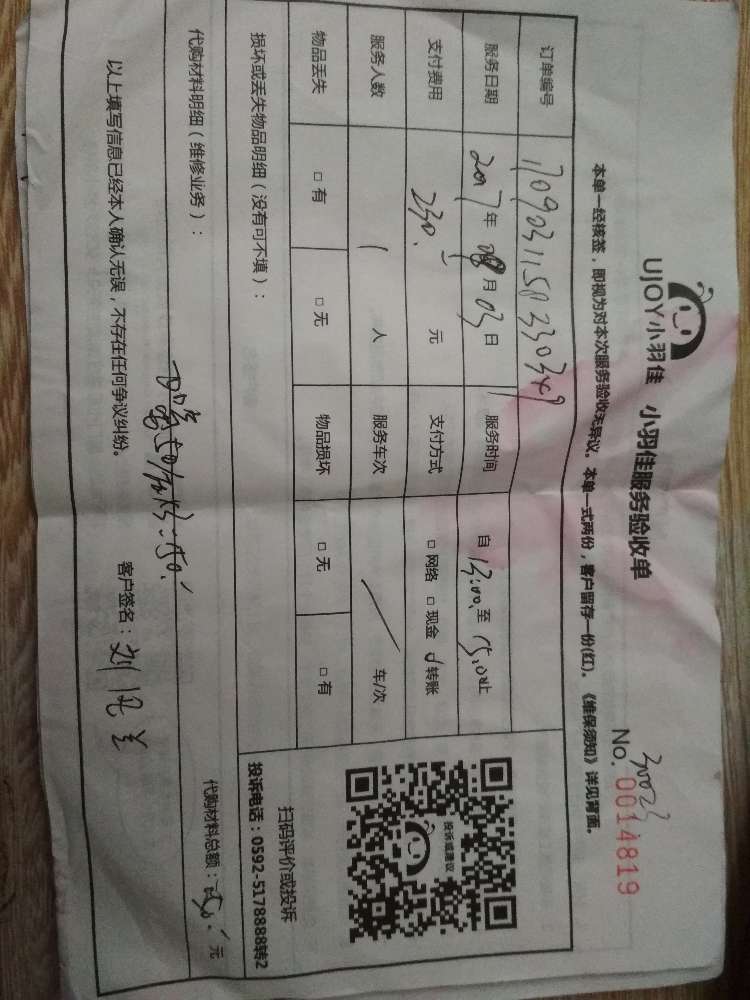 UJOY小羽佳 小羽佳服务验收单
30023
No. 0014819
本单一经核签，即视为对本次服务验收无异议。本单一式两份，客户留存一份(红)。《维保须知》详见背面。
订单编号
服务日期 2017年 月03日 服务时间 自13:00至15:0止
支付费用 230. 元 支付方式 □ 网络 □ 现金 转账
服务人数 1 人 服务车次 / 车/次
物品丢失 □ 有 □ 无 物品损坏 □ 无 □ 有
损坏或丢失物品明细（没有可不填）：
投诉或建议
扫码评价或投诉
投诉电话：0592-5178888转2
代购材料明细（维修业务）：
150.
代购材料总额： 元
以上填写信息已经本人确认无误，不存在任何争议纠纷。 客户签名：刘